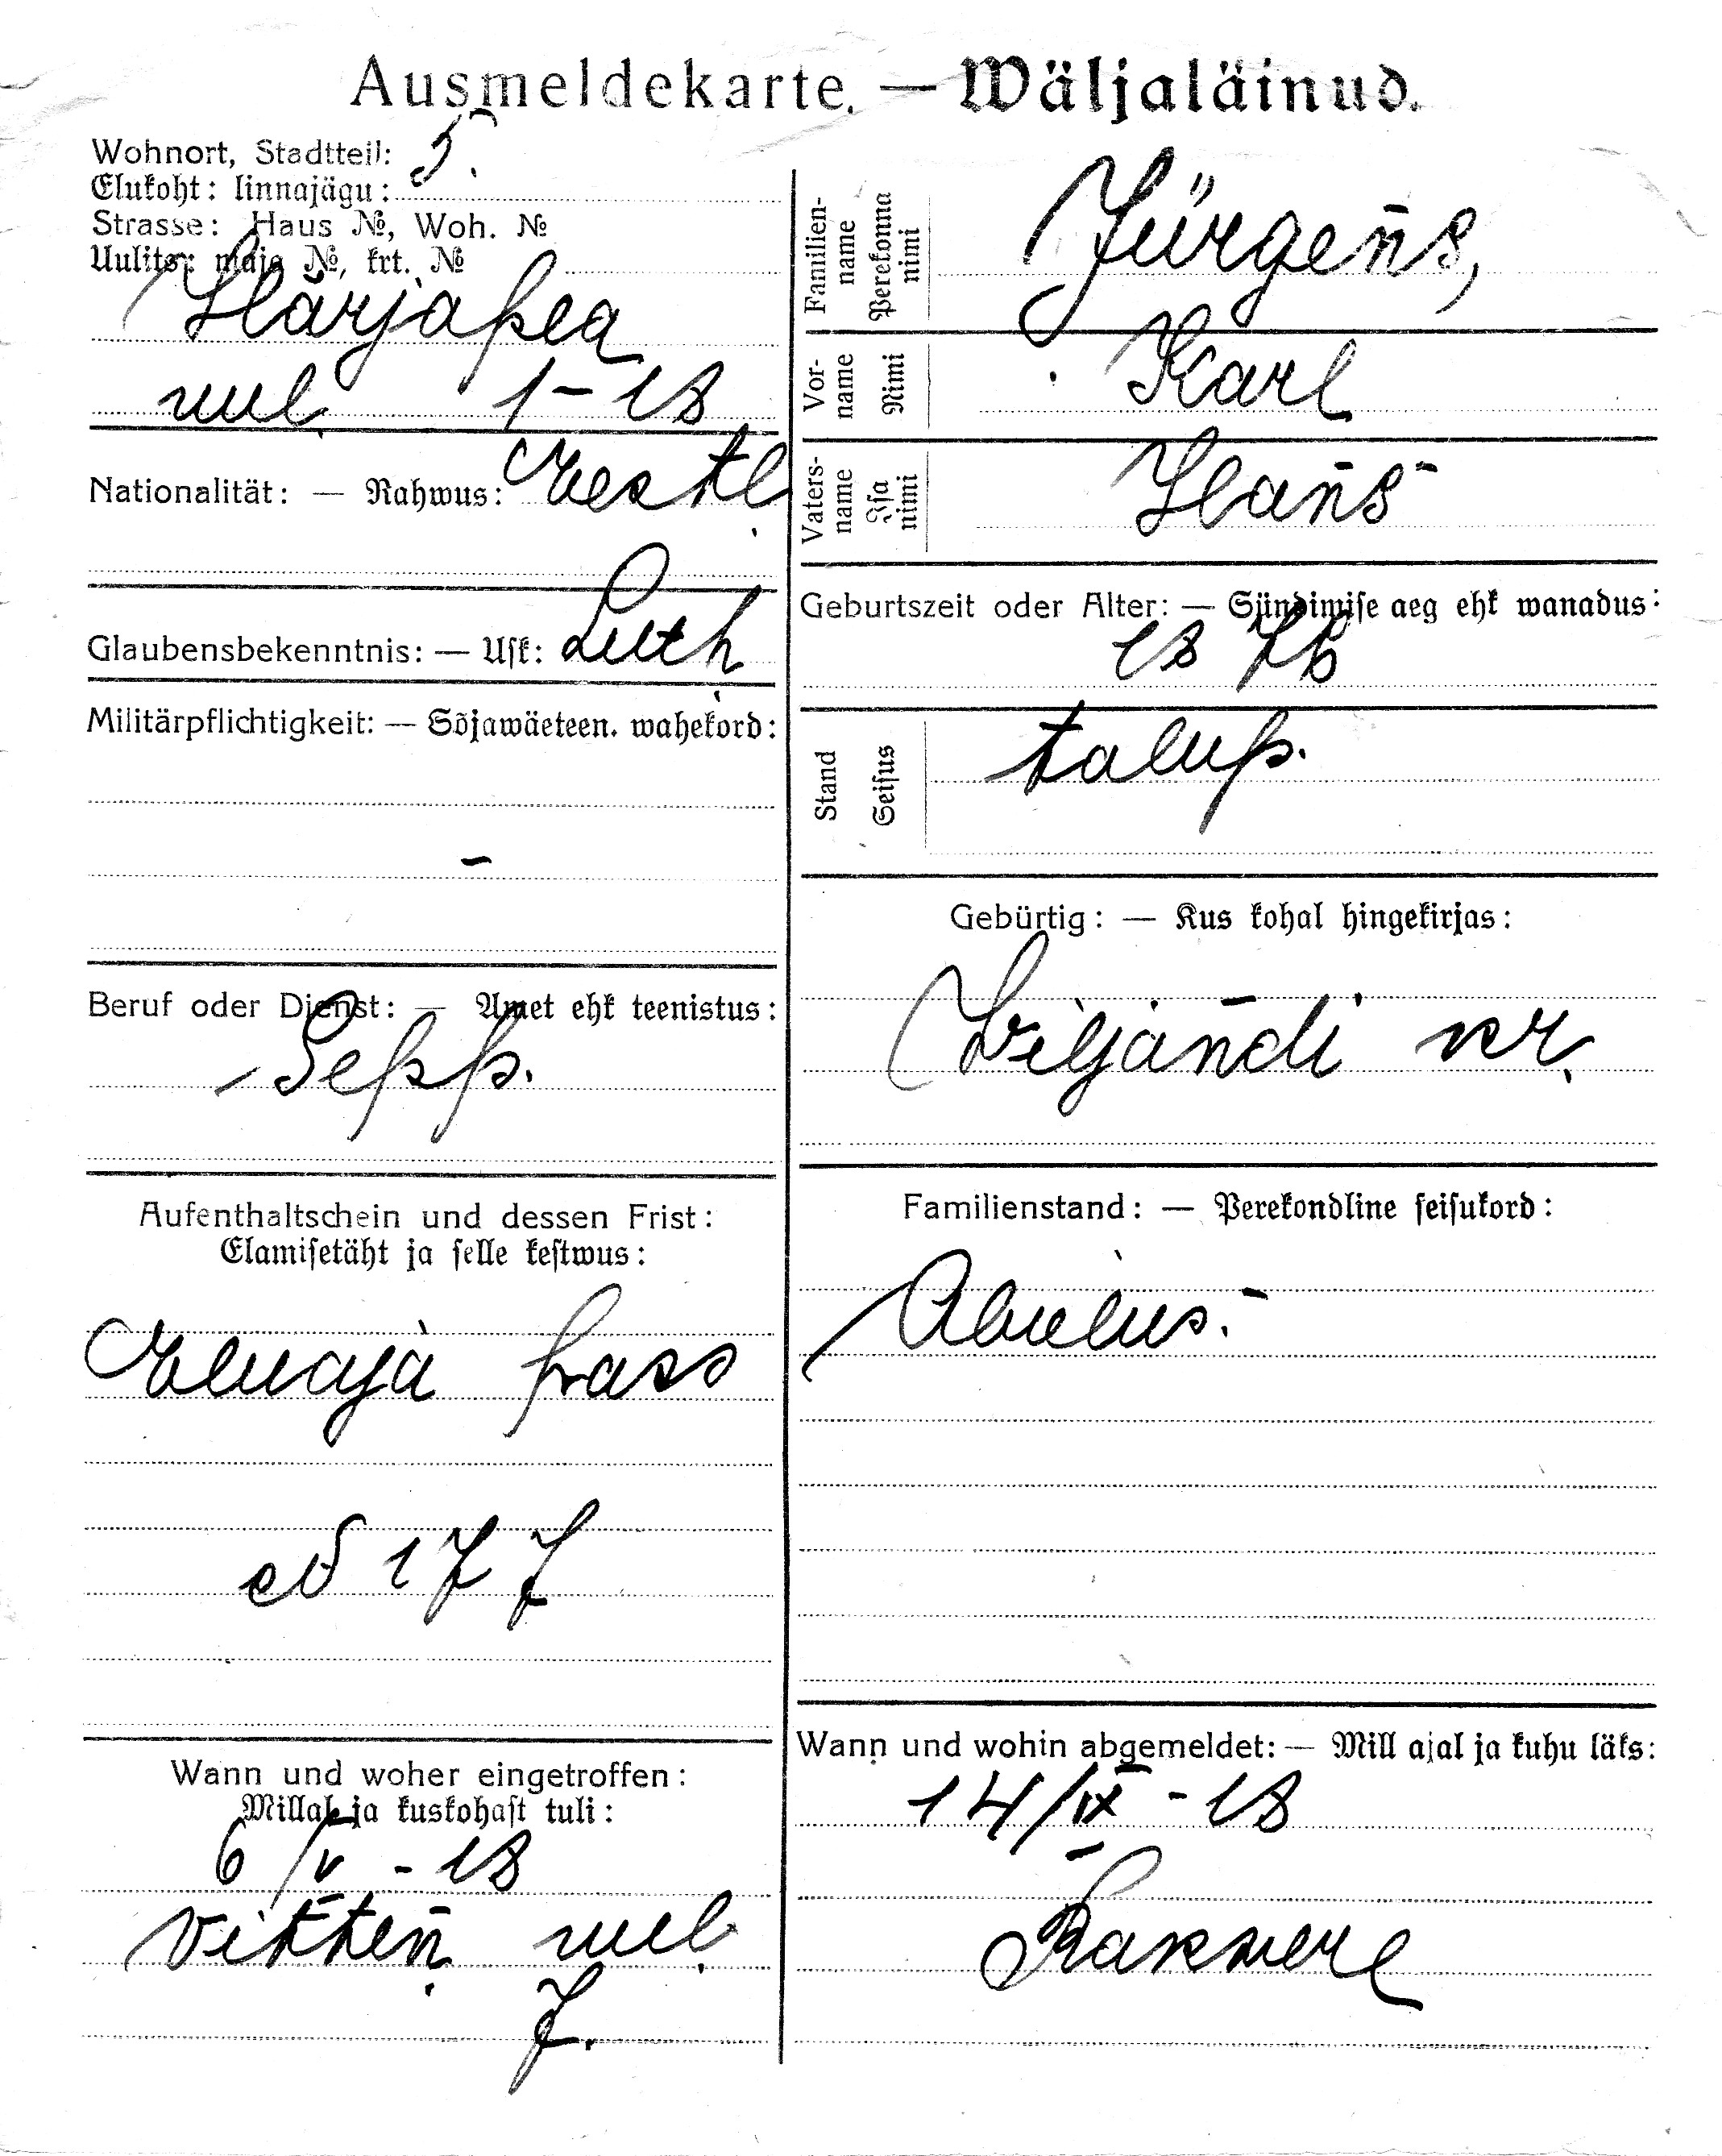 Ausmeldekarte. — Wäljaläinud.
Wohnort, Stadtteil: 5.
Elukoht: linnajägu:
Strasse: Haus №, Woh. №
Uulits: maja №, krt. №
Härjapea
uul. 1-18
Nationalität: — Rahwus: Eestl.
Glaubensbekenntnis: — Usk: Luth.
Militärpflichtigkeit: — Sõjawäeteen. wahekord:
-
Beruf oder Dienst: — Amet ehk teenistus:
Sepp.
Aufenthaltschein und dessen Frist:
Elamisetäht ja selle kestwus:
Eluaja pass
177
Wann und woher eingetroffen:
Millal ja kuskohast tuli:
6/V - 18
Vitten uul.
7.
Familien-name Perekonna nimi
Jürgens,
Vor-name Nimi
Karl
Vaters-name Isa nimi
Hans
Geburtszeit oder Alter: — Sündimise aeg ehk wanadus:
18 76
Stand Seisus
talup.
Gebürtig: — Kus kohal hingekirjas:
Viljandi kr.
Familienstand: — Perekondline seisukord:
Abielus.
Wann und wohin abgemeldet: — Mill ajal ja kuhu läks:
14/IX - 18
Rakvere